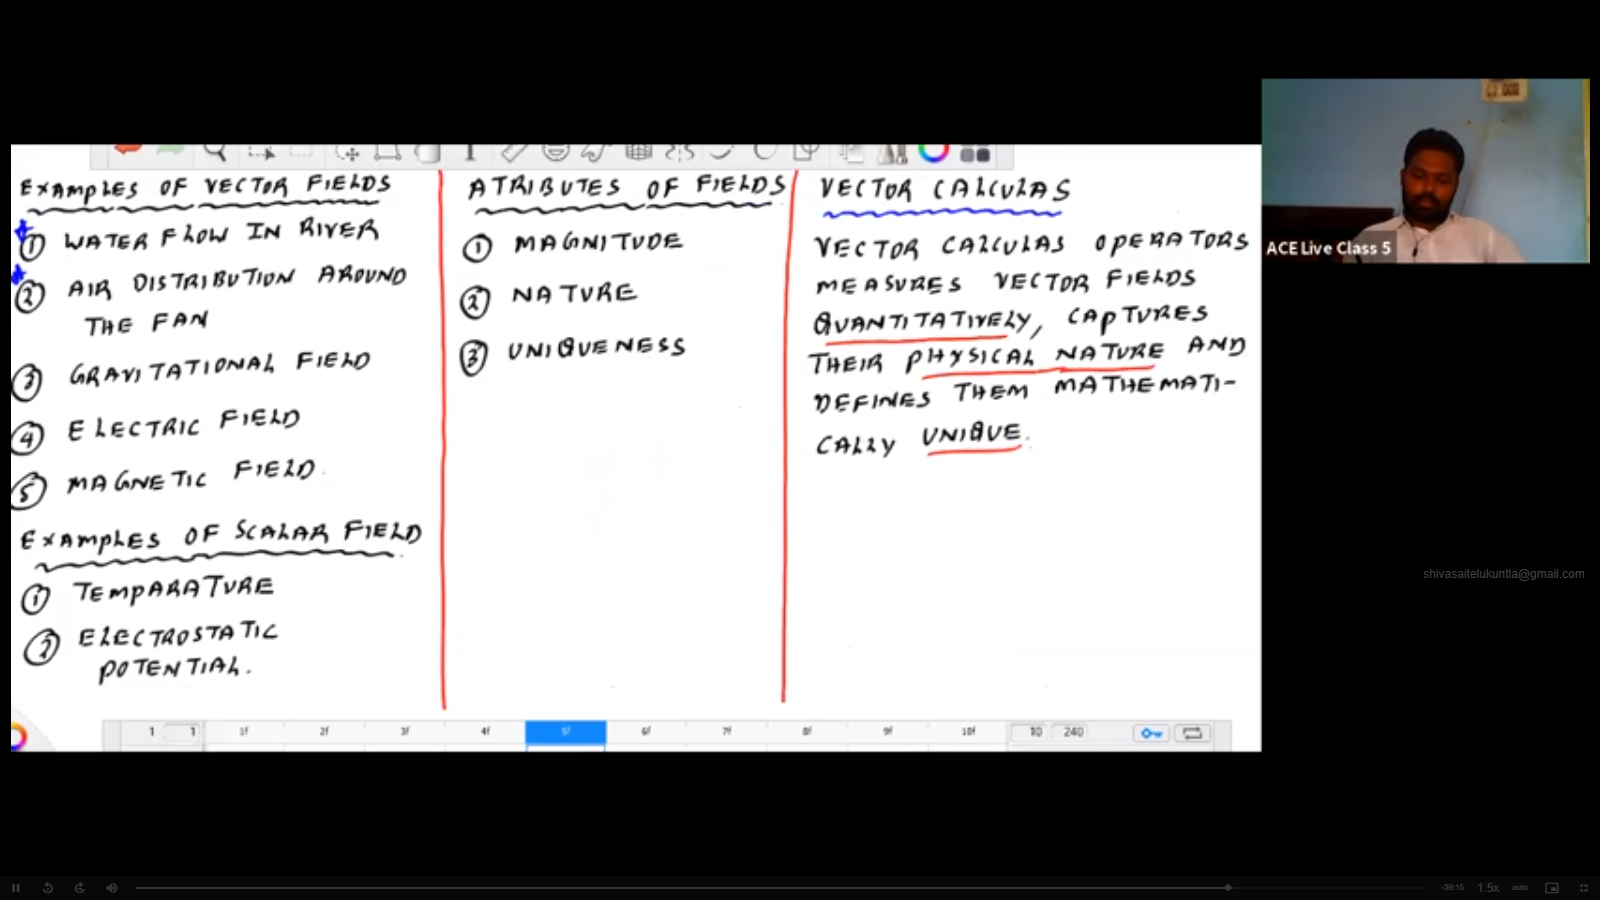 EXAMPLES OF VECTOR FIELDS
① WATER FLOW IN RIVER
② AIR DISTRIBUTION AROUND
THE FAN
③ GRAVITATIONAL FIELD
④ ELECTRIC FIELD
⑤ MAGNETIC FIELD.
EXAMPLES OF SCALAR FIELD
① TEMPARATURE
② ELECTROSTATIC
POTENTIAL.
ATRIBUTES OF FIELDS
① MAGNITUDE
② NATURE
③ UNIQUENESS
VECTOR CALCULAS
VECTOR CALCULAS OPERATORS
MEASURES VECTOR FIELDS
QUANTITATIVELY, CAPTURES
THEIR PHYSICAL NATURE AND
DEFINES THEM MATHEMATI-
CALLY UNIQUE.
ACE Live Class 5
shivasaitelukuntla@gmail.com
1 1 1f 2f 3f 4f 5f 6f 7f 8f 9f 10f 10 240
-39:15 1.5x auto